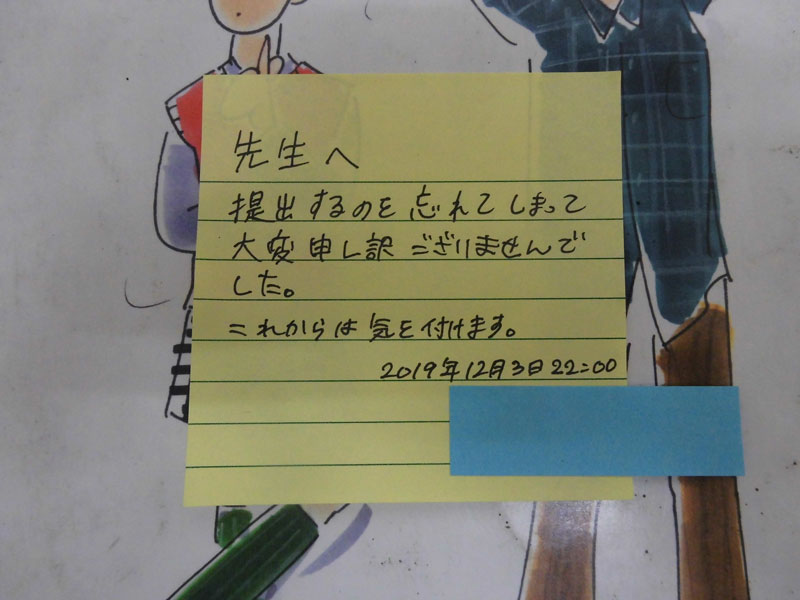 先生へ
提出するのを忘れてしまって
大変申し訳ございませんで
した。
これからは気を付けます。
2019年12月3日22:00